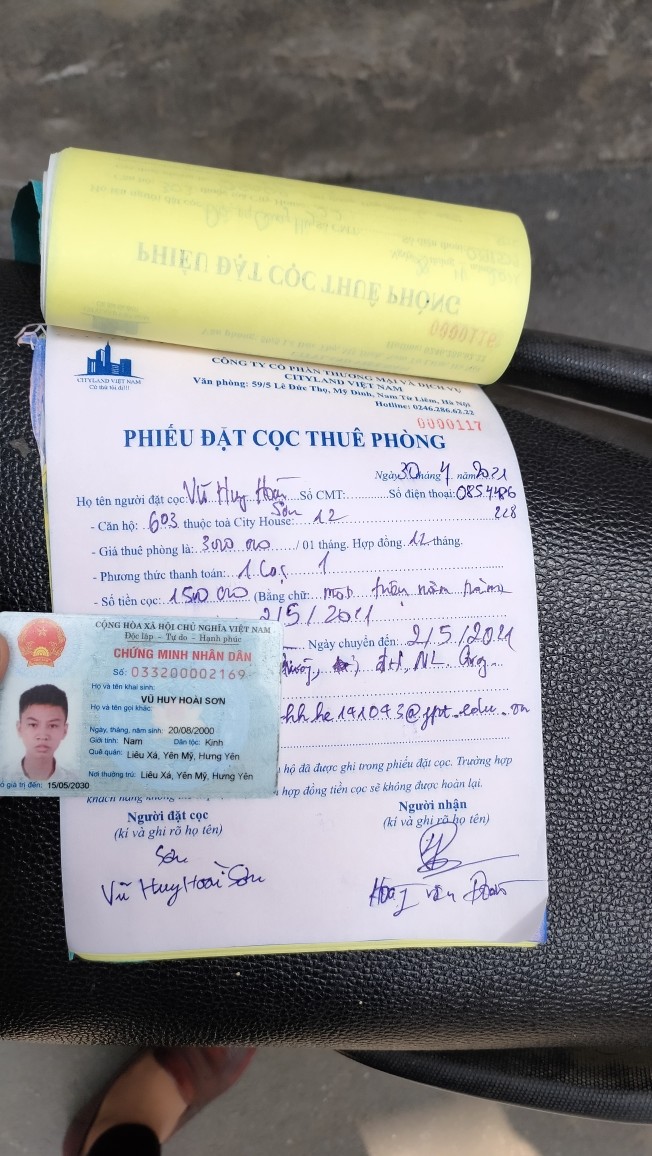 PHIẾU ĐẶT CỌC THUÊ PHÒNG
0000116
CITYLAND VIET NAM
CÔNG TY CỔ PHẦN THƯƠNG MẠI VÀ DỊCH VỤ
CITYLAND VIỆT NAM
Văn phòng: 59/5 Lê Đức Thọ, Mỹ Đình, Nam Từ Liêm, Hà Nội
Hotline: 0246.286.62.22
0000117
PHIẾU ĐẶT CỌC THUÊ PHÒNG
Ngày 30 tháng 4 năm 2021
Họ tên người đặt cọc: Vũ Huy Hoài Sơn Số CMT: Số điện thoại:
- Căn hộ: 603 thuộc toà City House: 12 228
- Giá thuê phòng là: / 01 tháng. Hợp đồng 12 tháng.
- Phương thức thanh toán: 1 Cọc 1
- Số tiền cọc: (Bằng chữ: một triệu năm trăm
Ngày chuyển đến:
hộ đã được ghi trong phiếu đặt cọc. Trường hợp
hợp đồng tiền cọc sẽ không được hoàn lại.
Người đặt cọc Người nhận
(kí và ghi rõ họ tên) (kí và ghi rõ họ tên)
Sơn
Vũ Huy Hoài Sơn
CỘNG HÒA XÃ HỘI CHỦ NGHĨA VIỆT NAM
Độc lập - Tự do - Hạnh phúc
CHỨNG MINH NHÂN DÂN
Số: 033200002169
Họ và tên khai sinh:
VŨ HUY HOÀI SƠN
Họ và tên gọi khác:
Ngày, tháng, năm sinh: 20/08/2000
Giới tính: Nam Dân tộc: Kinh
Quê quán: Liêu Xá, Yên Mỹ, Hưng Yên
Nơi thường trú: Liêu Xá, Yên Mỹ, Hưng Yên
giá trị đến: 15/05/2030